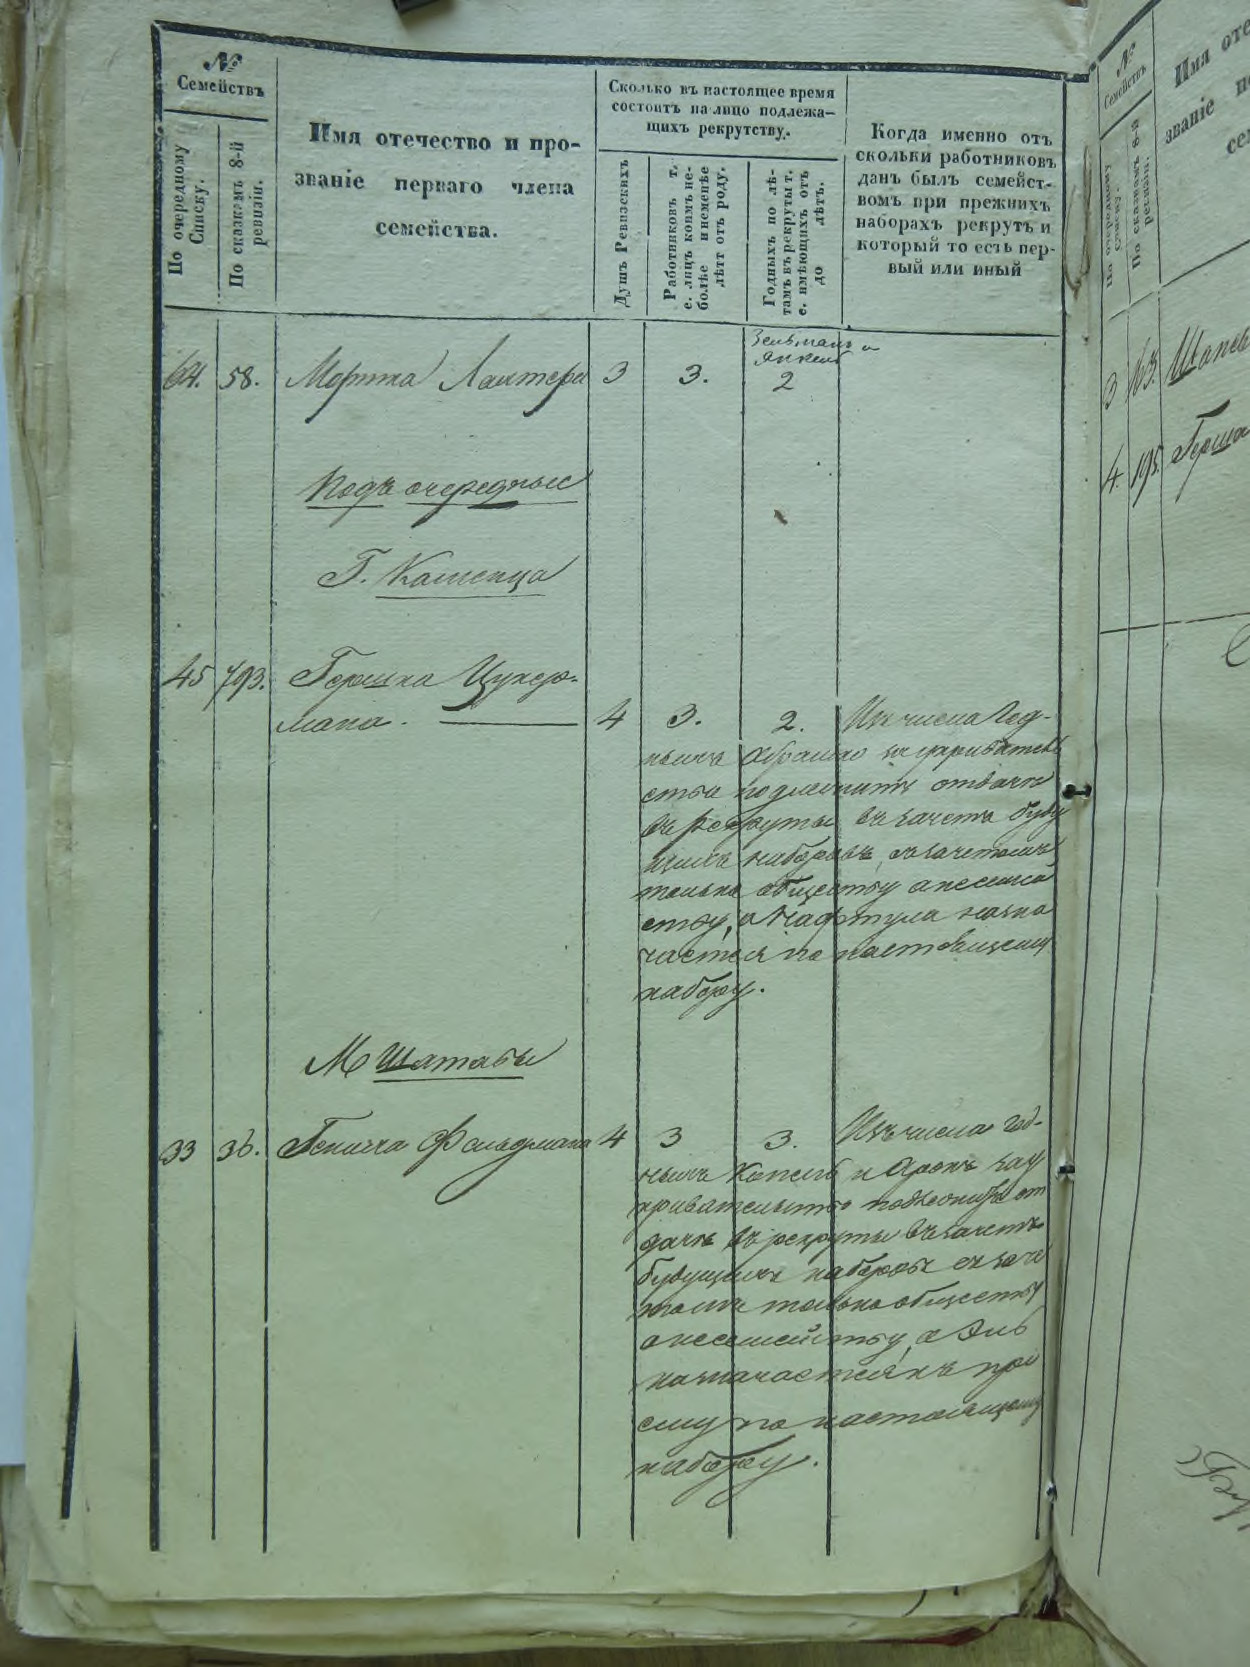 №
Семействъ
По очередному
Списку.
По сказкамъ 8-й
ревизіи.
Имя отечество и про-
званіе перваго члена
семейства.
Сколько въ настоящее время
состоитъ на лицо подлежа-
щихъ рекрутству.
Душъ Ревизскихъ
Работниковъ т.
е. лицъ комъ не-
болѣе и неменѣе
лѣтт отъ роду.
Годныхъ по лѣ-
тамъ въ рекруты т.
е. имѣющихъ отъ
до лѣтъ.
Когда именно отъ
скольки работниковъ
данъ былъ семейст-
вомъ при прежнихъ
наборахъ рекрутъ и
который то есть пер-
вый или иный
Зельманъ и
Янкель
64. 58. Мортка 3 3. 2
Подъ очередные
Г. Каменца
45 793. Гершка Цукер-
мана. 4 3. 2. Изъ числа год-
ныхъ Абрамъ за укривательс
ство подлежитъ отдачи
въ рекруты въ зачетъ буду
щихъ наборовъ, съ зачетомъ
только обществу а несемей
ству, а Нафтула назна
чается по настоящему
набору.
М Шатавы
33 36. Геника Фельдмана 4 3 3. Изъ числа год-
ныхъ Копель и Аронъ за у
кривательство подлежитъ от
дачи въ рекруты въ зачетъ
будущихъ наборовъ съ заче
томъ только обществу
а несемейству, а Эль
назначается къ прі
ему по настоящему
набору.
№
Семействъ
По очередному
Списку.
По сказкамъ 8-й
ревизіи.
Имя оте
званіе п
се
3
4. 195. Герша